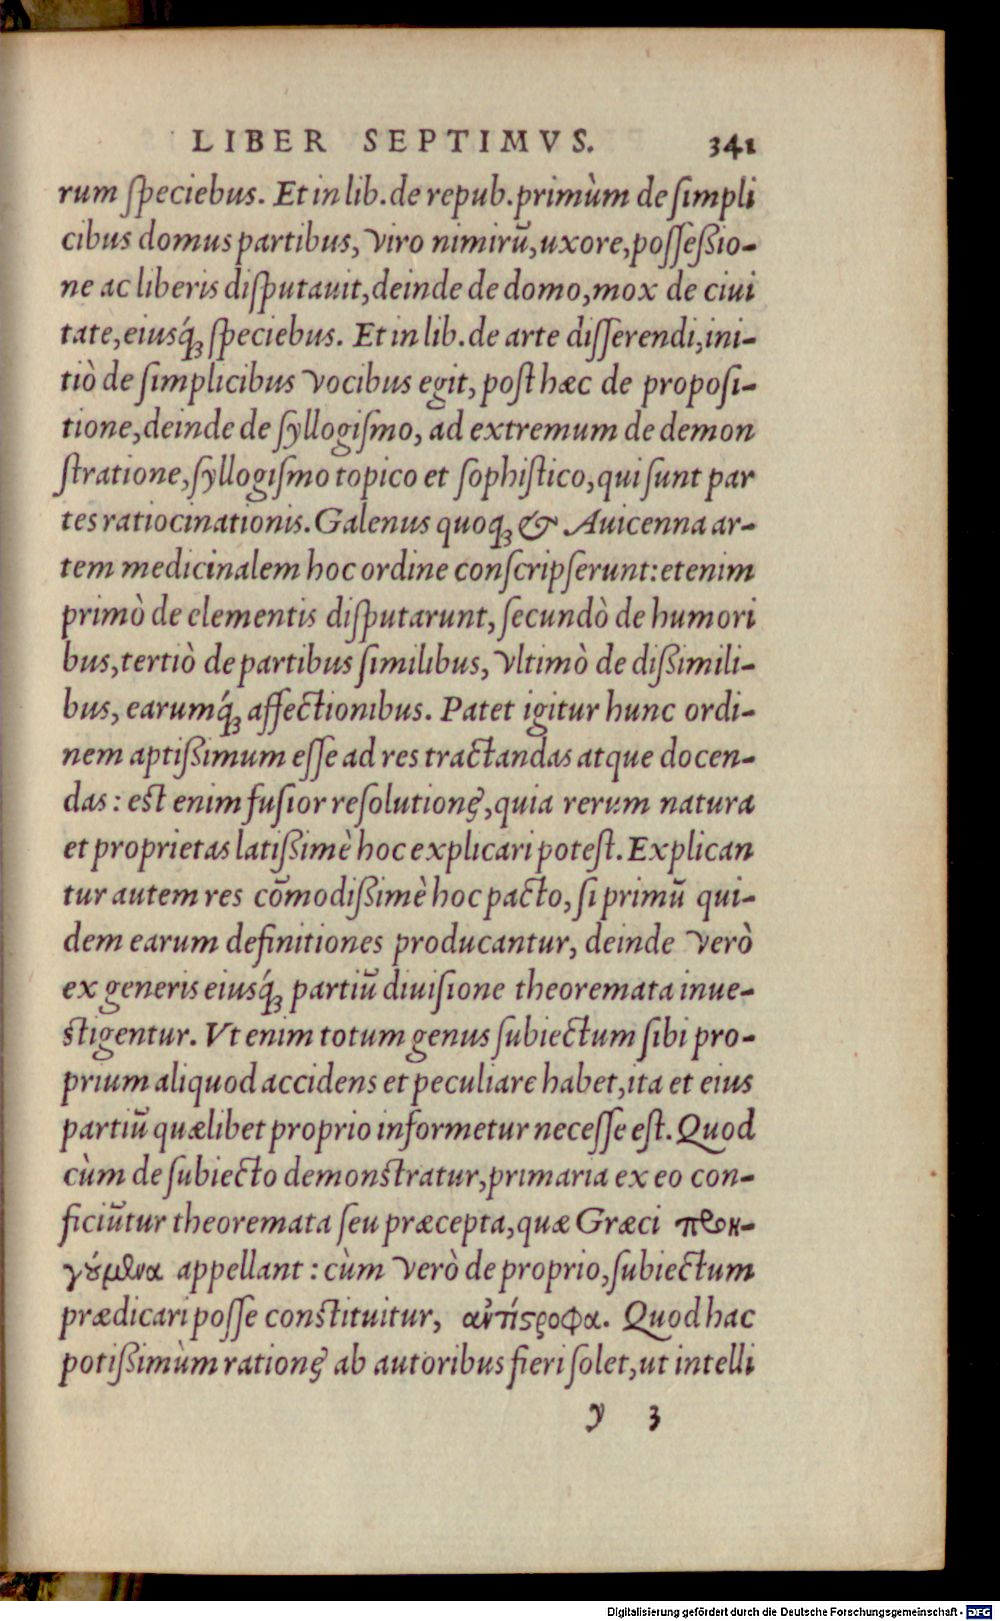 LIBER SEPTIMVS. 341
rum ſpeciebus. Et in lib. de repub. primùm de ſimpli
cibus domus partibus, viro nimirū, uxore, poſſeßio-
ne ac liberis diſputauit, deinde de domo, mox de ciui
tate, eiusq́ꝫ ſpeciebus. Et in lib. de arte diſſerendi, ini-
tiò de ſimplicibus vocibus egit, poſt hæc de propoſi-
tione, deinde de ſyllogiſmo, ad extremum de demon
ſtratione, ſyllogiſmo topico et ſophiſtico, qui ſunt par
tes ratiocinationis. Galenus quoqꝫ & Auicenna ar-
tem medicinalem hoc ordine conſcripſerunt: etenim
primò de elementis diſputarunt, ſecundò de humori
bus, tertiò de partibus ſimilibus, vltimò de dißimili-
bus, earumq́ꝫ affectionibus. Patet igitur hunc ordi-
nem aptißimum eſſe ad res tractandas atque docen-
das: est enim fuſior reſolutionę, quia rerum natura
et proprietas latißimè hoc explicari poteſt. Explican
tur autem res cōmodißimè hoc pacto, ſi primū qui-
dem earum definitiones producantur, deinde verò
ex generis eiusq́ꝫ partiū diuiſione theoremata inue-
stigentur. Vt enim totum genus ſubiectum ſibi pro-
prium aliquod accidens et peculiare habet, ita et eius
partiū quælibet proprio informetur neceſſe eſt. Quod
cùm de ſubiecto demonstratur, primaria ex eo con-
ficiūtur theoremata ſeu præcepta, quæ Græci προη-
γούμϑνα appellant: cùm verò de proprio, ſubiectum
prædicari poſſe constituitur, αὐτίςροφα. Quod hac
potißimùm rationę ab autoribus fieri ſolet, ut intelli
y 3
Digitalisierung gefördert durch die Deutsche Forschungsgemeinschaft - DFG